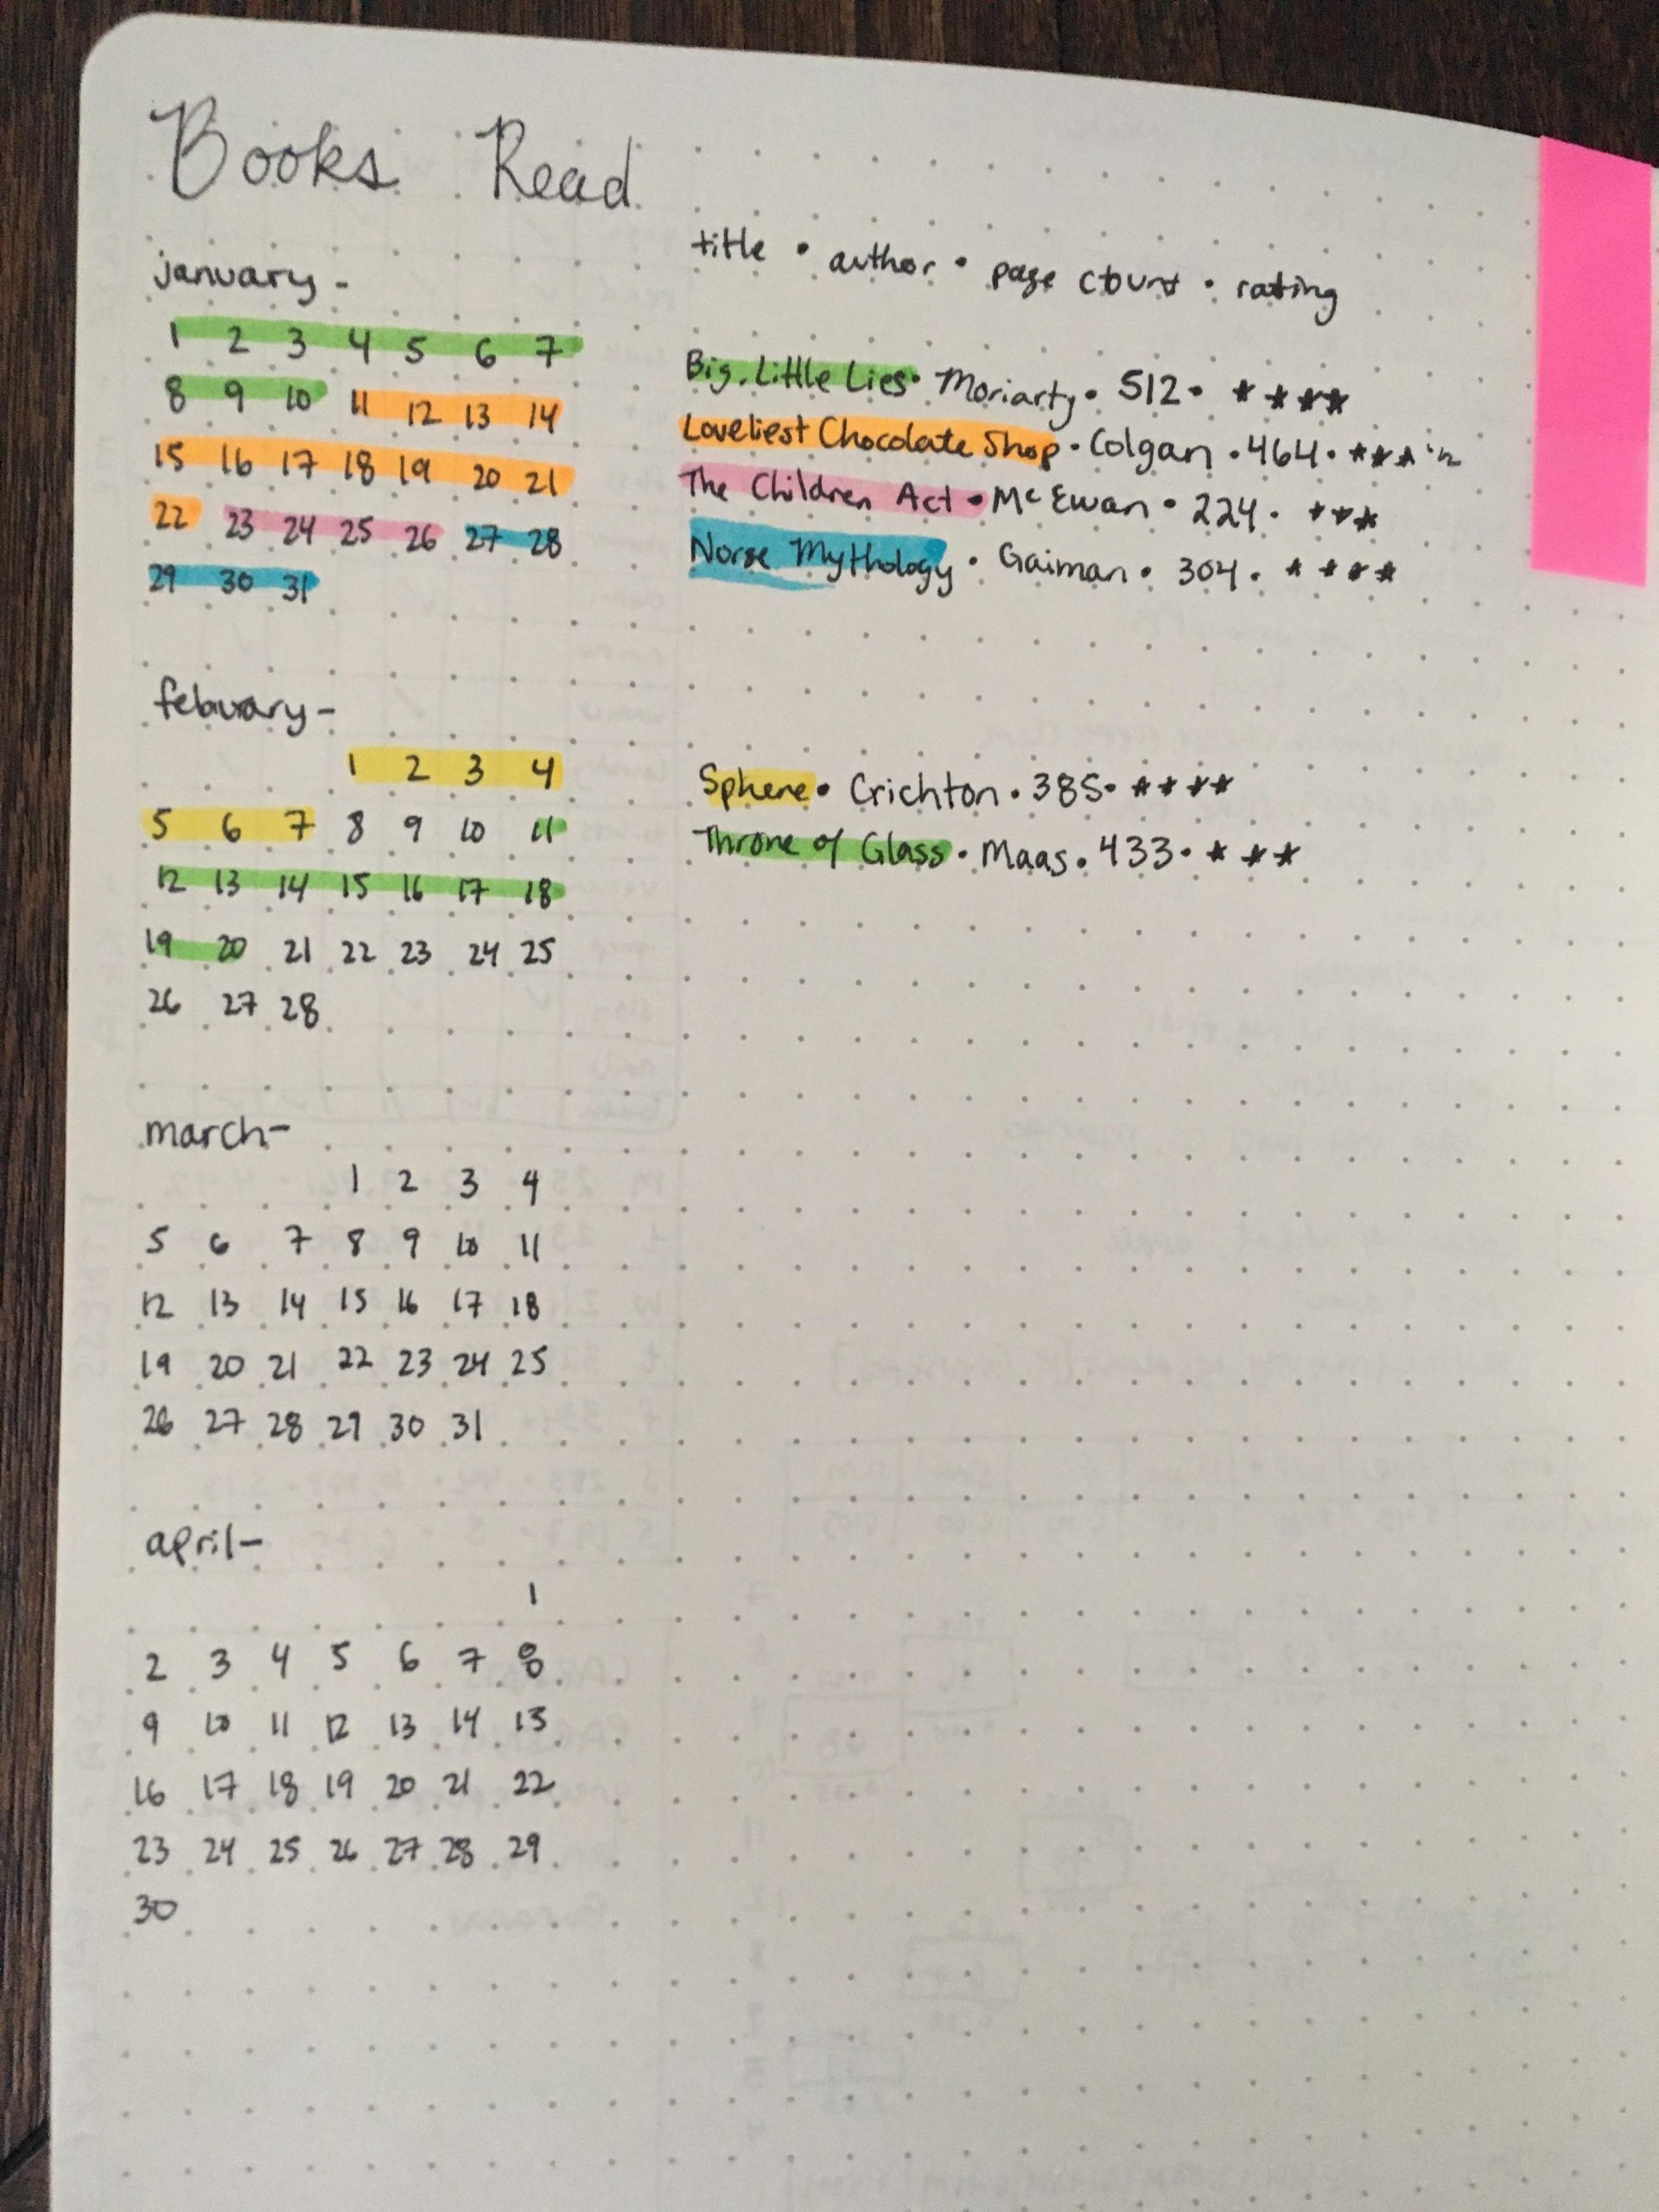 Books Read
title • author • page count • rating
january -
1 2 3 4 5 6 7
8 9 10 11 12 13 14
15 16 17 18 19 20 21
22 23 24 25 26 27 28
29 30 31
Big Little Lies • Moriarty • 512 • ★★★★
Loveliest Chocolate Shop • Colgan • 464 • ★★★ 1/2
The Children Act • McEwan • 224 • ★★★
Norse Mythology • Gaiman • 304 • ★★★★
febuary -
1 2 3 4
5 6 7 8 9 10 11
12 13 14 15 16 17 18
19 20 21 22 23 24 25
26 27 28
Sphere • Crichton • 385 • ★★★★
Throne of Glass • Maas • 433 • ★★★
march -
1 2 3 4
5 6 7 8 9 10 11
12 13 14 15 16 17 18
19 20 21 22 23 24 25
26 27 28 29 30 31
april -
1
2 3 4 5 6 7 8
9 10 11 12 13 14 15
16 17 18 19 20 21 22
23 24 25 26 27 28 29
30